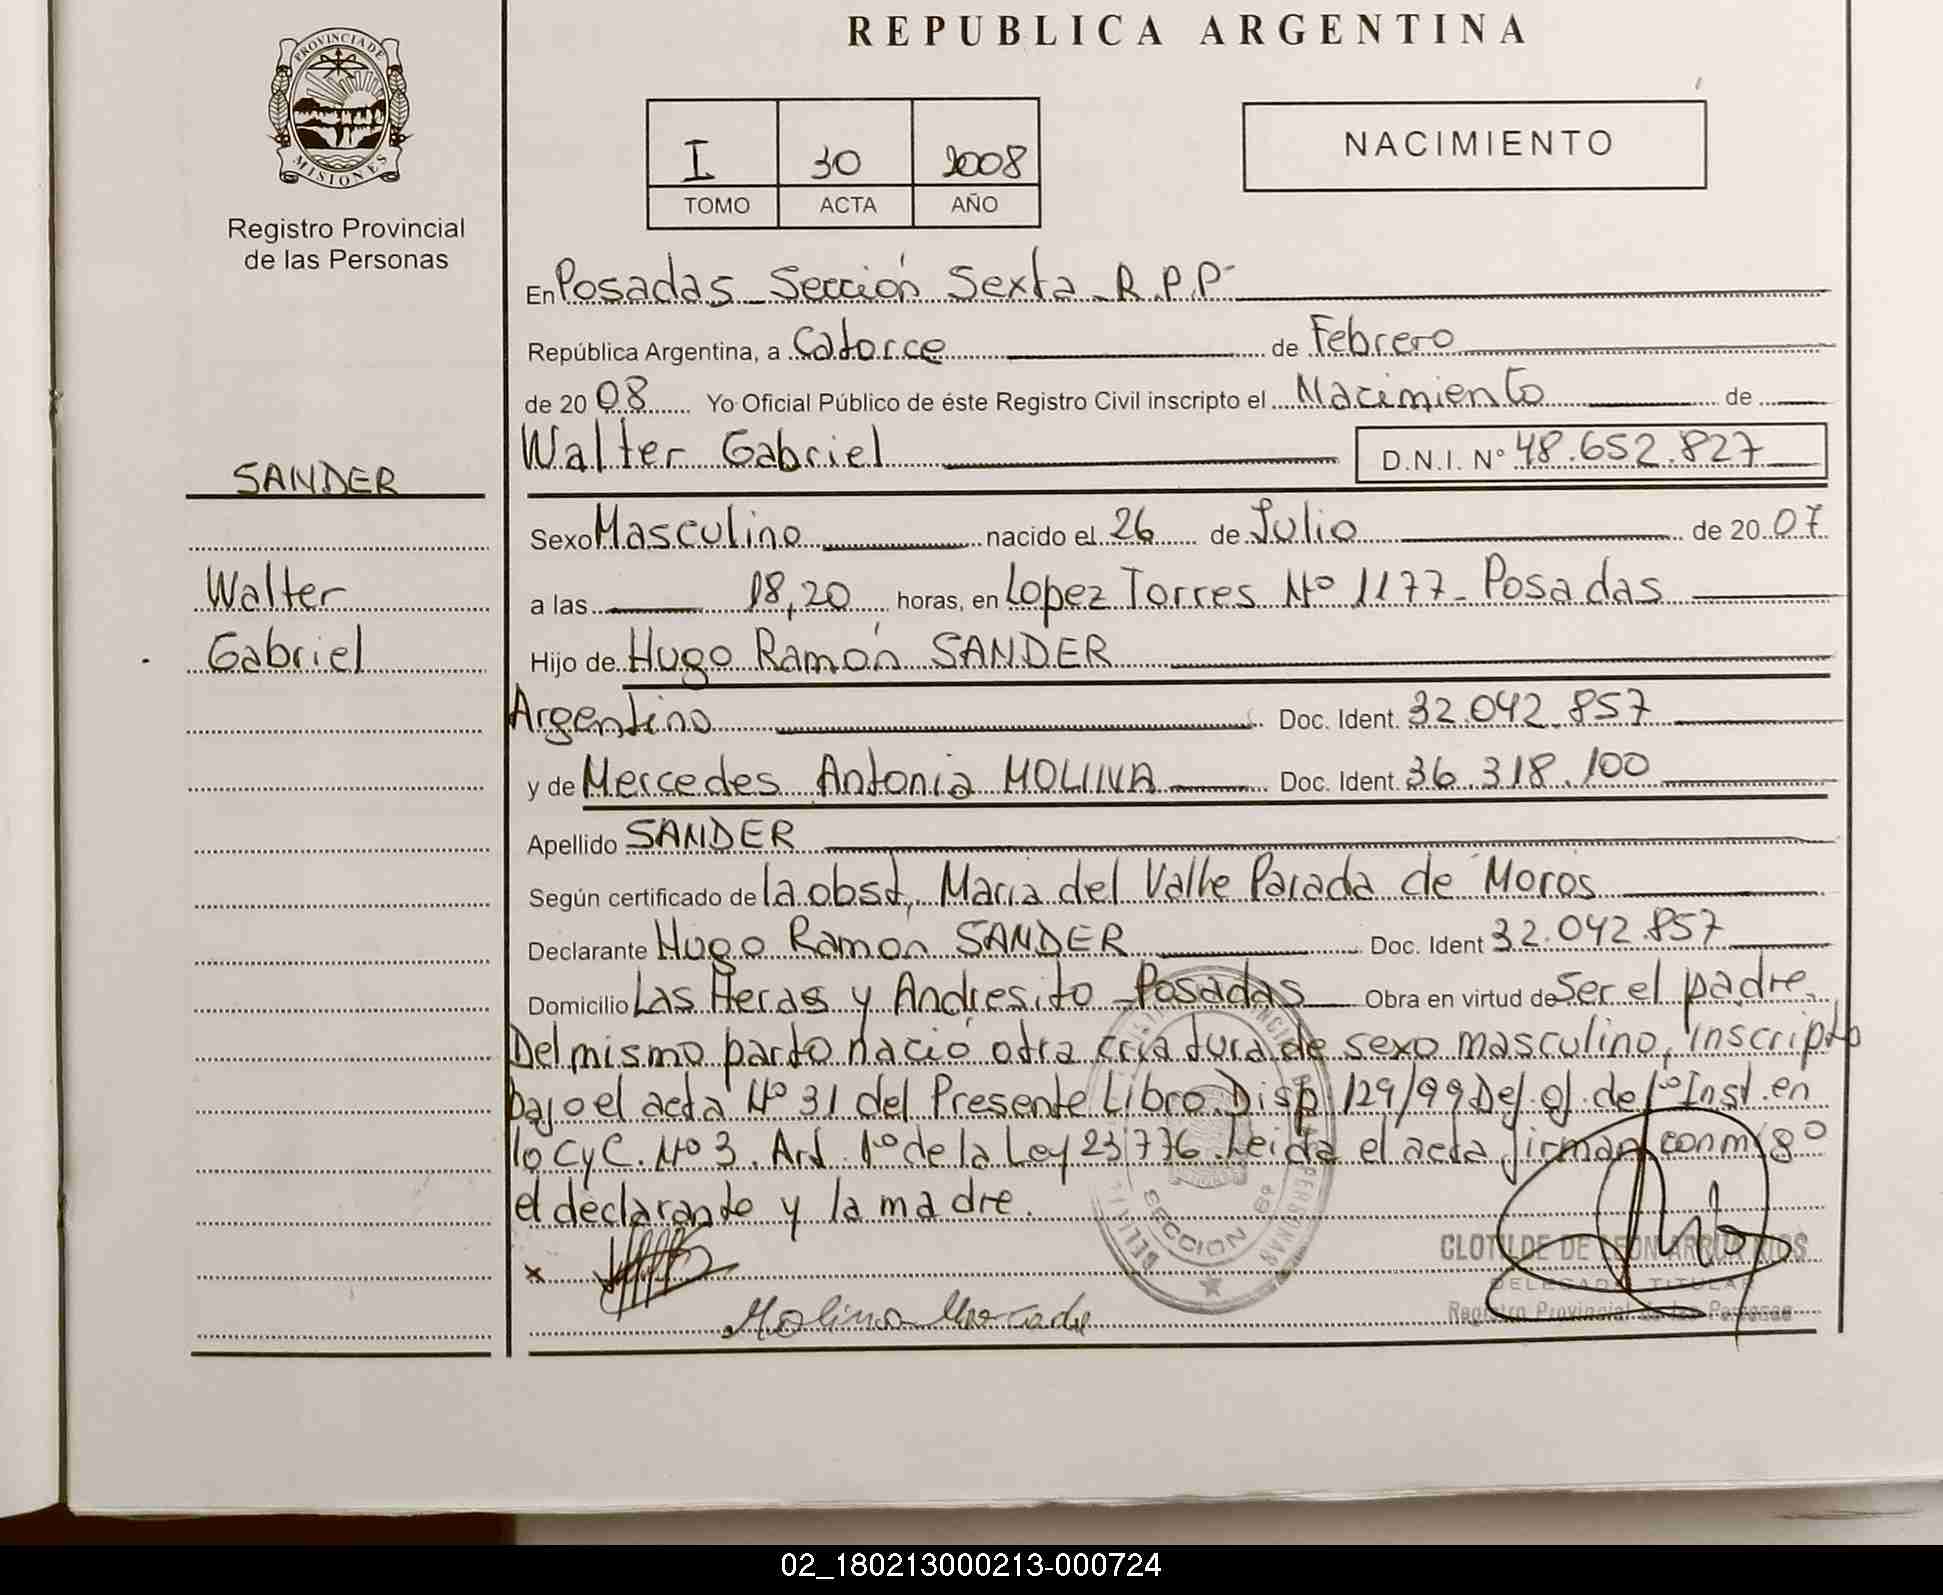 REPUBLICA ARGENTINA
PROVINCIA DE
MISIONES
Registro Provincial
de las Personas
I 30 2008
TOMO ACTA AÑO
NACIMIENTO
En Posadas Sección Sexta R.P.P
República Argentina, a Catorce de Febrero
de 2008 Yo Oficial Público de éste Registro Civil inscripto el Nacimiento de
Walter Gabriel D.N.I. Nº 48.652.827
SANDER
Walter
Gabriel
Sexo Masculino nacido el 26 de Julio de 2007
a las 18,20 horas, en Lopez Torres Nº 1177 - Posadas
Hijo de Hugo Ramón SANDER
Argentino Doc. Ident. 32.042.857
y de Mercedes Antonia MOLINA Doc. Ident. 36.318.100
Apellido SANDER
Según certificado de la obst, Maria del Valle Parada de Moros
Declarante Hugo Ramon SANDER Doc. Ident 32.042.857
Domicilio Las Heras y Andresito - Posadas Obra en virtud de Ser el padre.
Del mismo parto nació otra criatura de sexo masculino, inscripto
bajo el acta Nº 31 del Presente Libro. Disp 129/99 Def. Of. de 1º Inst. en
lo C y C. Nº 3. Art 1º de la Ley 23776. Leida el acta firman conmigo
el declarante y la madre.
x
Molina Mercedes
SECCION 6ª
CLOTILDE DE LEON ARRUA RIOS
DELEGADA TITULAR
Registro Provincial de las Personas
02_180213000213-000724